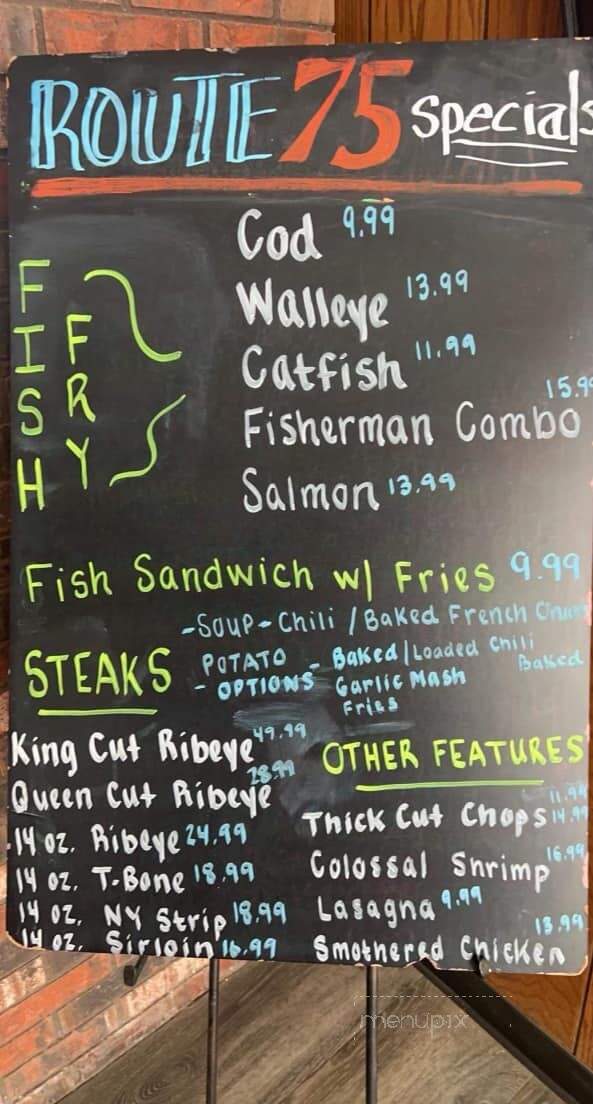 ROUTE 75 specials
FISH FRY
Cod 9.99
Walleye 13.99
Catfish 11.99
Fisherman Combo 15.99
Salmon 13.99
Fish Sandwich w/ Fries 9.99
-Soup- Chili / Baked French Onion
STEAKS
POTATO - Baked/Loaded Chili Baked
- OPTIONS Garlic Mash
Fries
King Cut Ribeye 49.99
Queen Cut Ribeye 28.99
14 oz. Ribeye 24.99
14 oz. T-Bone 18.99
14 oz. NY Strip 18.99
14 oz. Sirloin 16.99
OTHER FEATURES
Thick Cut Chops 11.99 14.99
Colossal Shrimp 16.99
Lasagna 9.99
Smothered Chicken 13.99
menupix